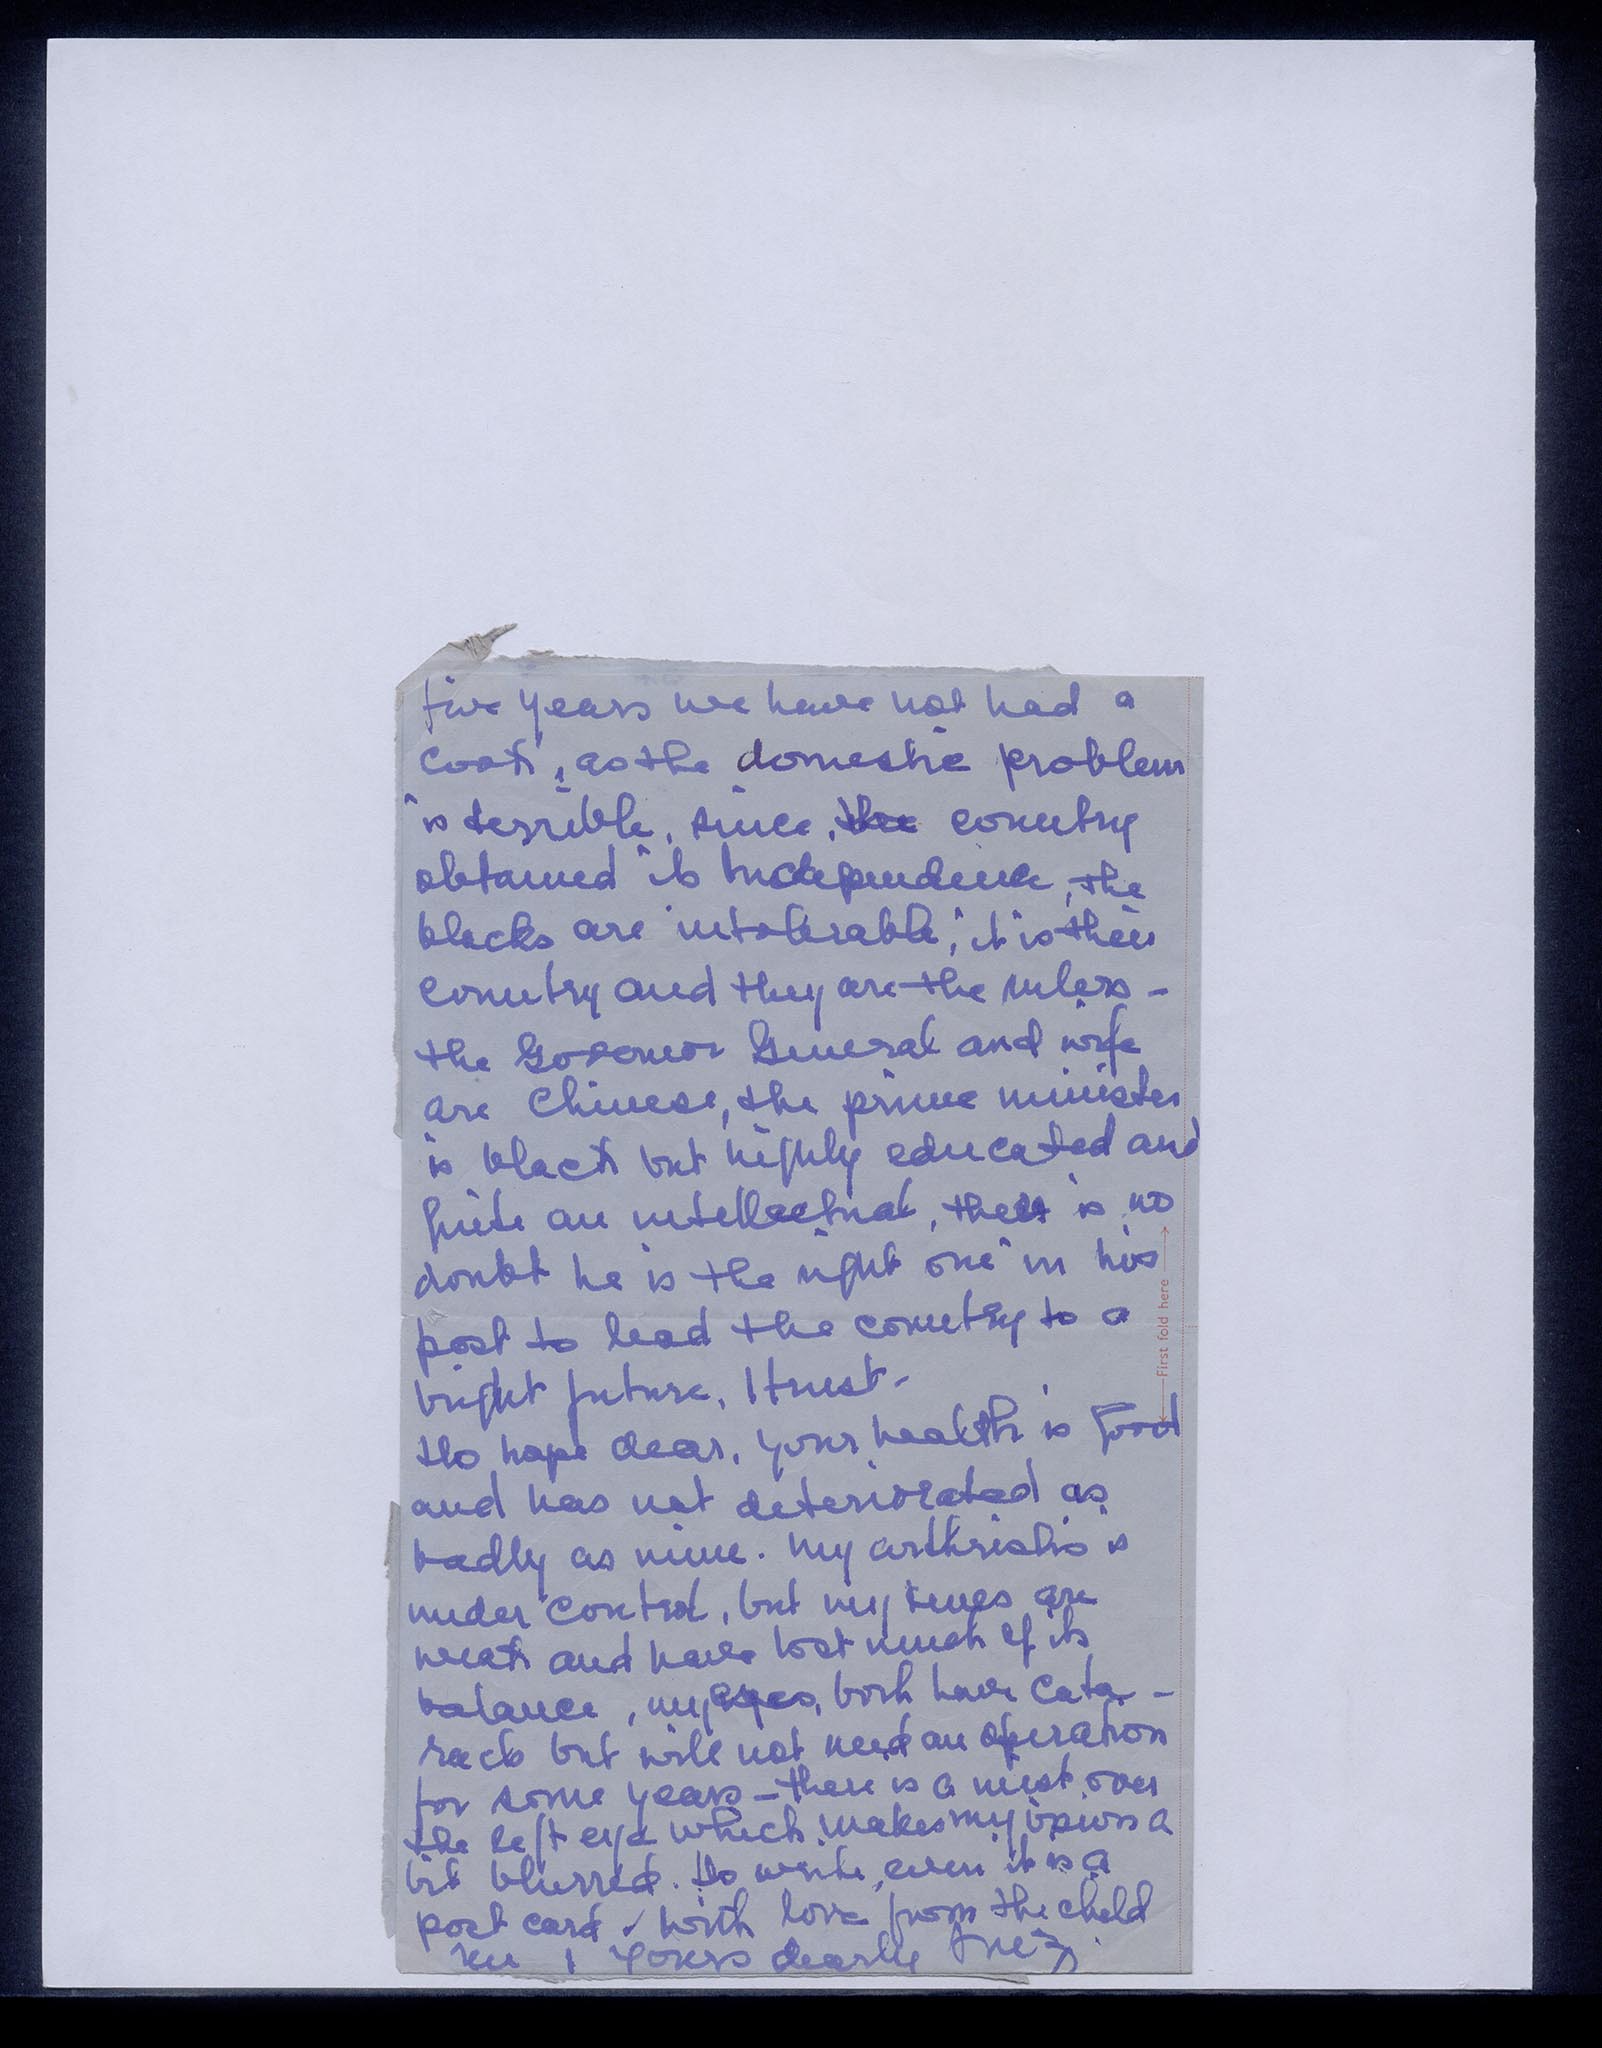 five years we have not had a
cook, as the domestic problem
is terrible, since, the country
obtained its Independence, the
blacks are intolerable, it is their
country and they are the rulers -
the Governor General and wife
are Chinese, the prime minister
is black but highly educated and
quite an intellectual, there is no
doubt he is the right one in his
post to lead the country to a
bright future, I trust -
hope dear, your health is good
and has not deteriorated as
badly as mine. My arthristis is
under control, but my knees are
weak and have lost much of its
balance, my eyes, both have cata -
racts but will not need an operation
for some years - there is a mist over
the left eye which makes my vision a
bit blurred. Do write, even it is a
post card - with love from the child
Yours dearly Inez
First fold here